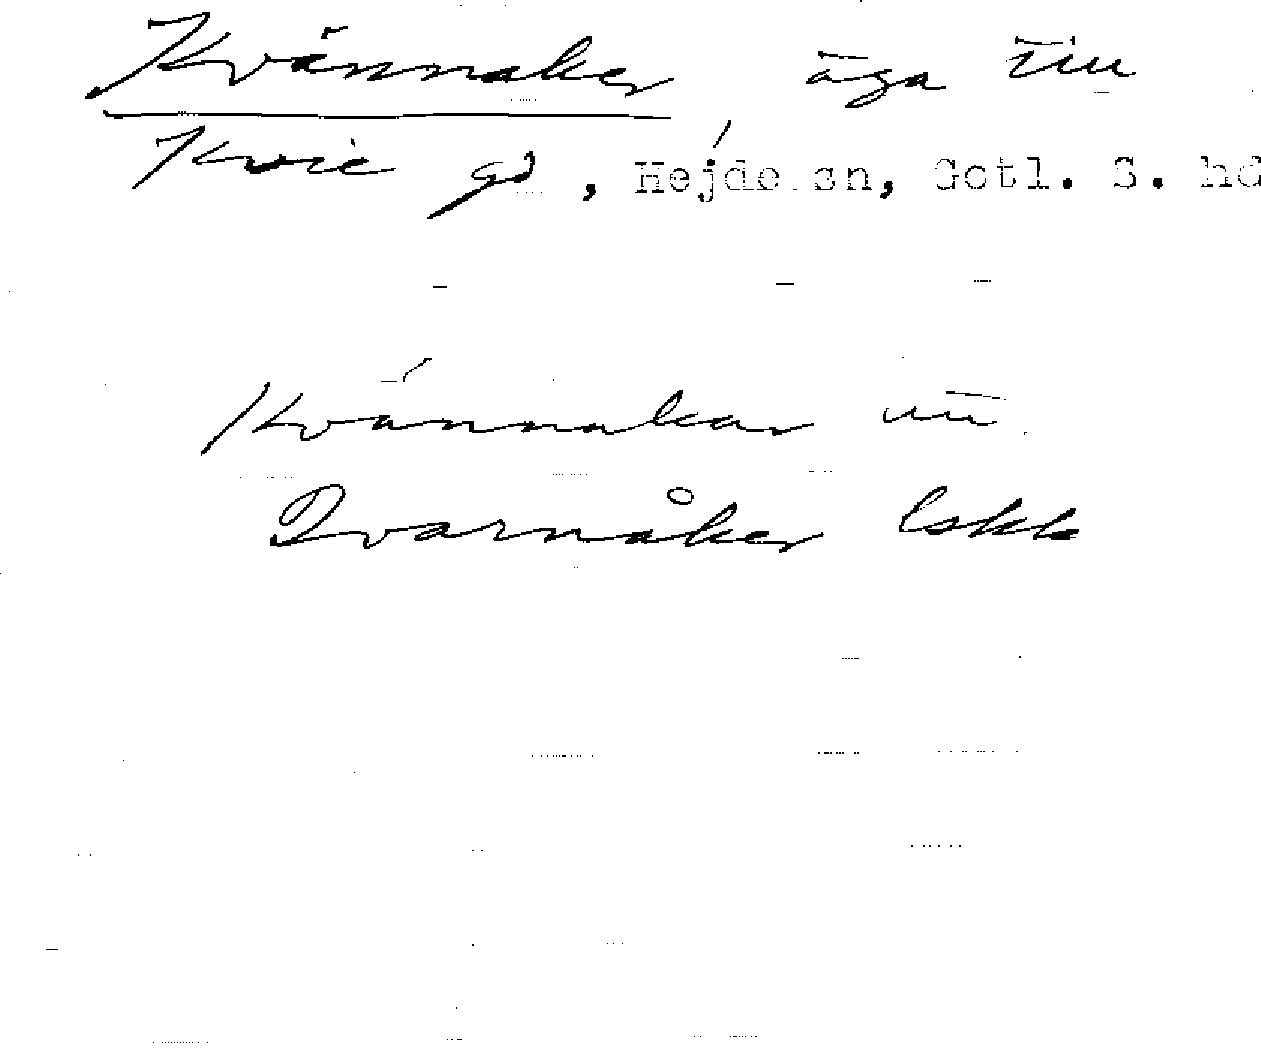 Kvännaker äga till
Kvie gd, Hejde sn, Gotl. S. hd
Kvännakar
Qvarnåker lskk